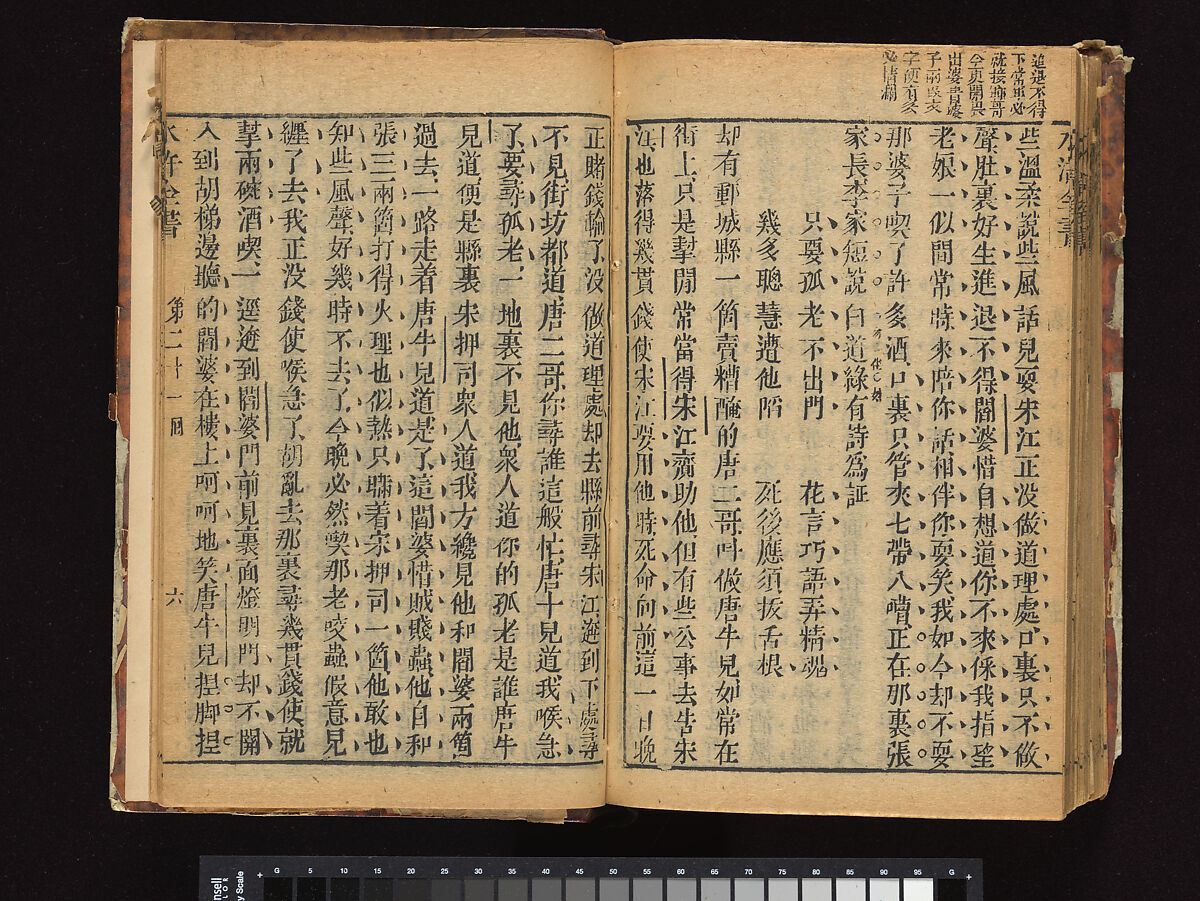 追退不得
下常事必
就接鄆哥
今更閒與
出婆書婆
字便有多
水滸全書
些溫柔說些風話兒耍宋江正沒做道理處口裏只不做
聲肚裏好生進退不得閻婆惜自想道你不來倸我指望
老娘一似閒常時來陪你話相伴你耍笑我如今却不耍
那婆子喫了許多酒口裏只管夾七帶八嘈正在那裏張
家長李家短說白道綠有詩爲証
只要孤老不出門 花言巧語弄精魂
幾多聰慧遭他陷 死後應須拔舌根
却有鄆城縣一箇賣糟醃的唐二哥叫做唐牛兒如常在
街上只是挈閒常常得宋江齎助他但有些公事去告宋
江也落得幾貫錢使宋江要用他時死命向前這一日晚
正賭錢輸了沒做道理處却去縣前尋宋江遶到下處尋
不見街坊都道唐二哥你尋誰這般忙唐十見道我喉急
了要尋孤老一地裏不見他衆人道你的孤老是誰唐牛
見道便是縣裏宋押司衆人道我方纔見他和閻婆兩箇
過去一路走着唐牛兒道是了這閻婆惜賊賤蟲他自和
張三兩箇打得火塊也似熱只瞞着宋押司一箇他敢也
知些風聲好幾時不去了今晚必然喫那老咬蟲假意兒
纏了去我正沒錢使喉急了胡亂去那裏尋幾貫錢使就
挈兩碗酒喫一逕遶到閻婆門前見裏面燈明門却不關
入到胡梯邊聽的閻婆在樓上呵呵地笑唐牛兒捏脚捏
水滸全書 第二十一回 六
0 5 10 15 20 25 30 35 40 45 50 55 60 65 70 75 80 85 90 95